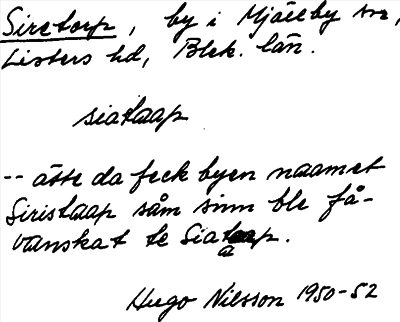 Siretorp, by i Mjällby sn,
Listers hd, Blek. län.
siataap
-- ätte da feck byen naamet
Siristaap såm sinn ble få-
vanskat te Siataap.
a
Hugo Nilsson 1950-52